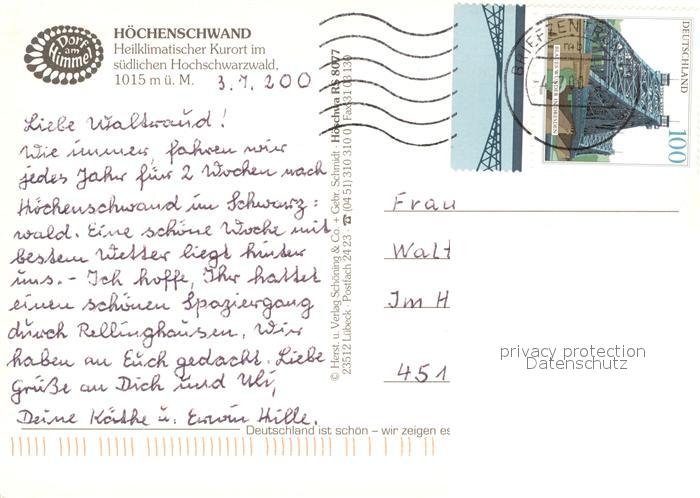 Dorf am Himmel
HÖCHENSCHWAND
Heilklimatischer Kurort im
südlichen Hochschwarzwald,
1015 m ü. M.
3.7.200
Liebe Waltraud!
Wie immer fahren wir
jedes Jahr für 2 Wochen nach
Höchenschwand im Schwarz=
wald. Eine schöne Woche mit
bestem Wetter liegt hinter
uns. - Ich hoffe, Ihr hattet
einen schönen Spaziergang
durch Rellinghausen. Wir
haben an Euch gedacht. Liebe
Grüße an Dich und Uli,
Deine Käthe u. Erwin Hille.
© Herst. u. Verlag Schöning & Co. + Gebr. Schmidt · Höschwa RS 8077
23512 Lübeck · Postfach 24 23 · ☎ (04 51) 310 310 · Fax
Deutschland ist schön – wir zeigen es
BRIEFZENTR
BLAUES WUNDER IN DRESDEN
DEUTSCHLAND
100
Frau
Walt
Im H
451
privacy protection
Datenschutz